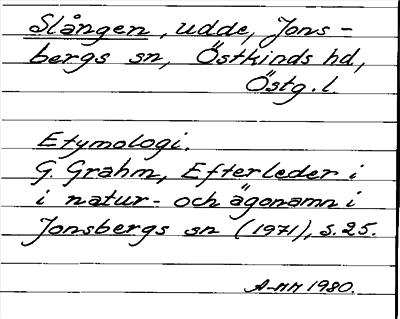 Slången, udde, Jons-
bergs sn, Östkinds hd,
Östg. l.
Etymologi.
G. Grahm, Efterleder i
i natur- och ägonamn i
Jonsbergs sn (1971), s. 25.
A-MM 1980.